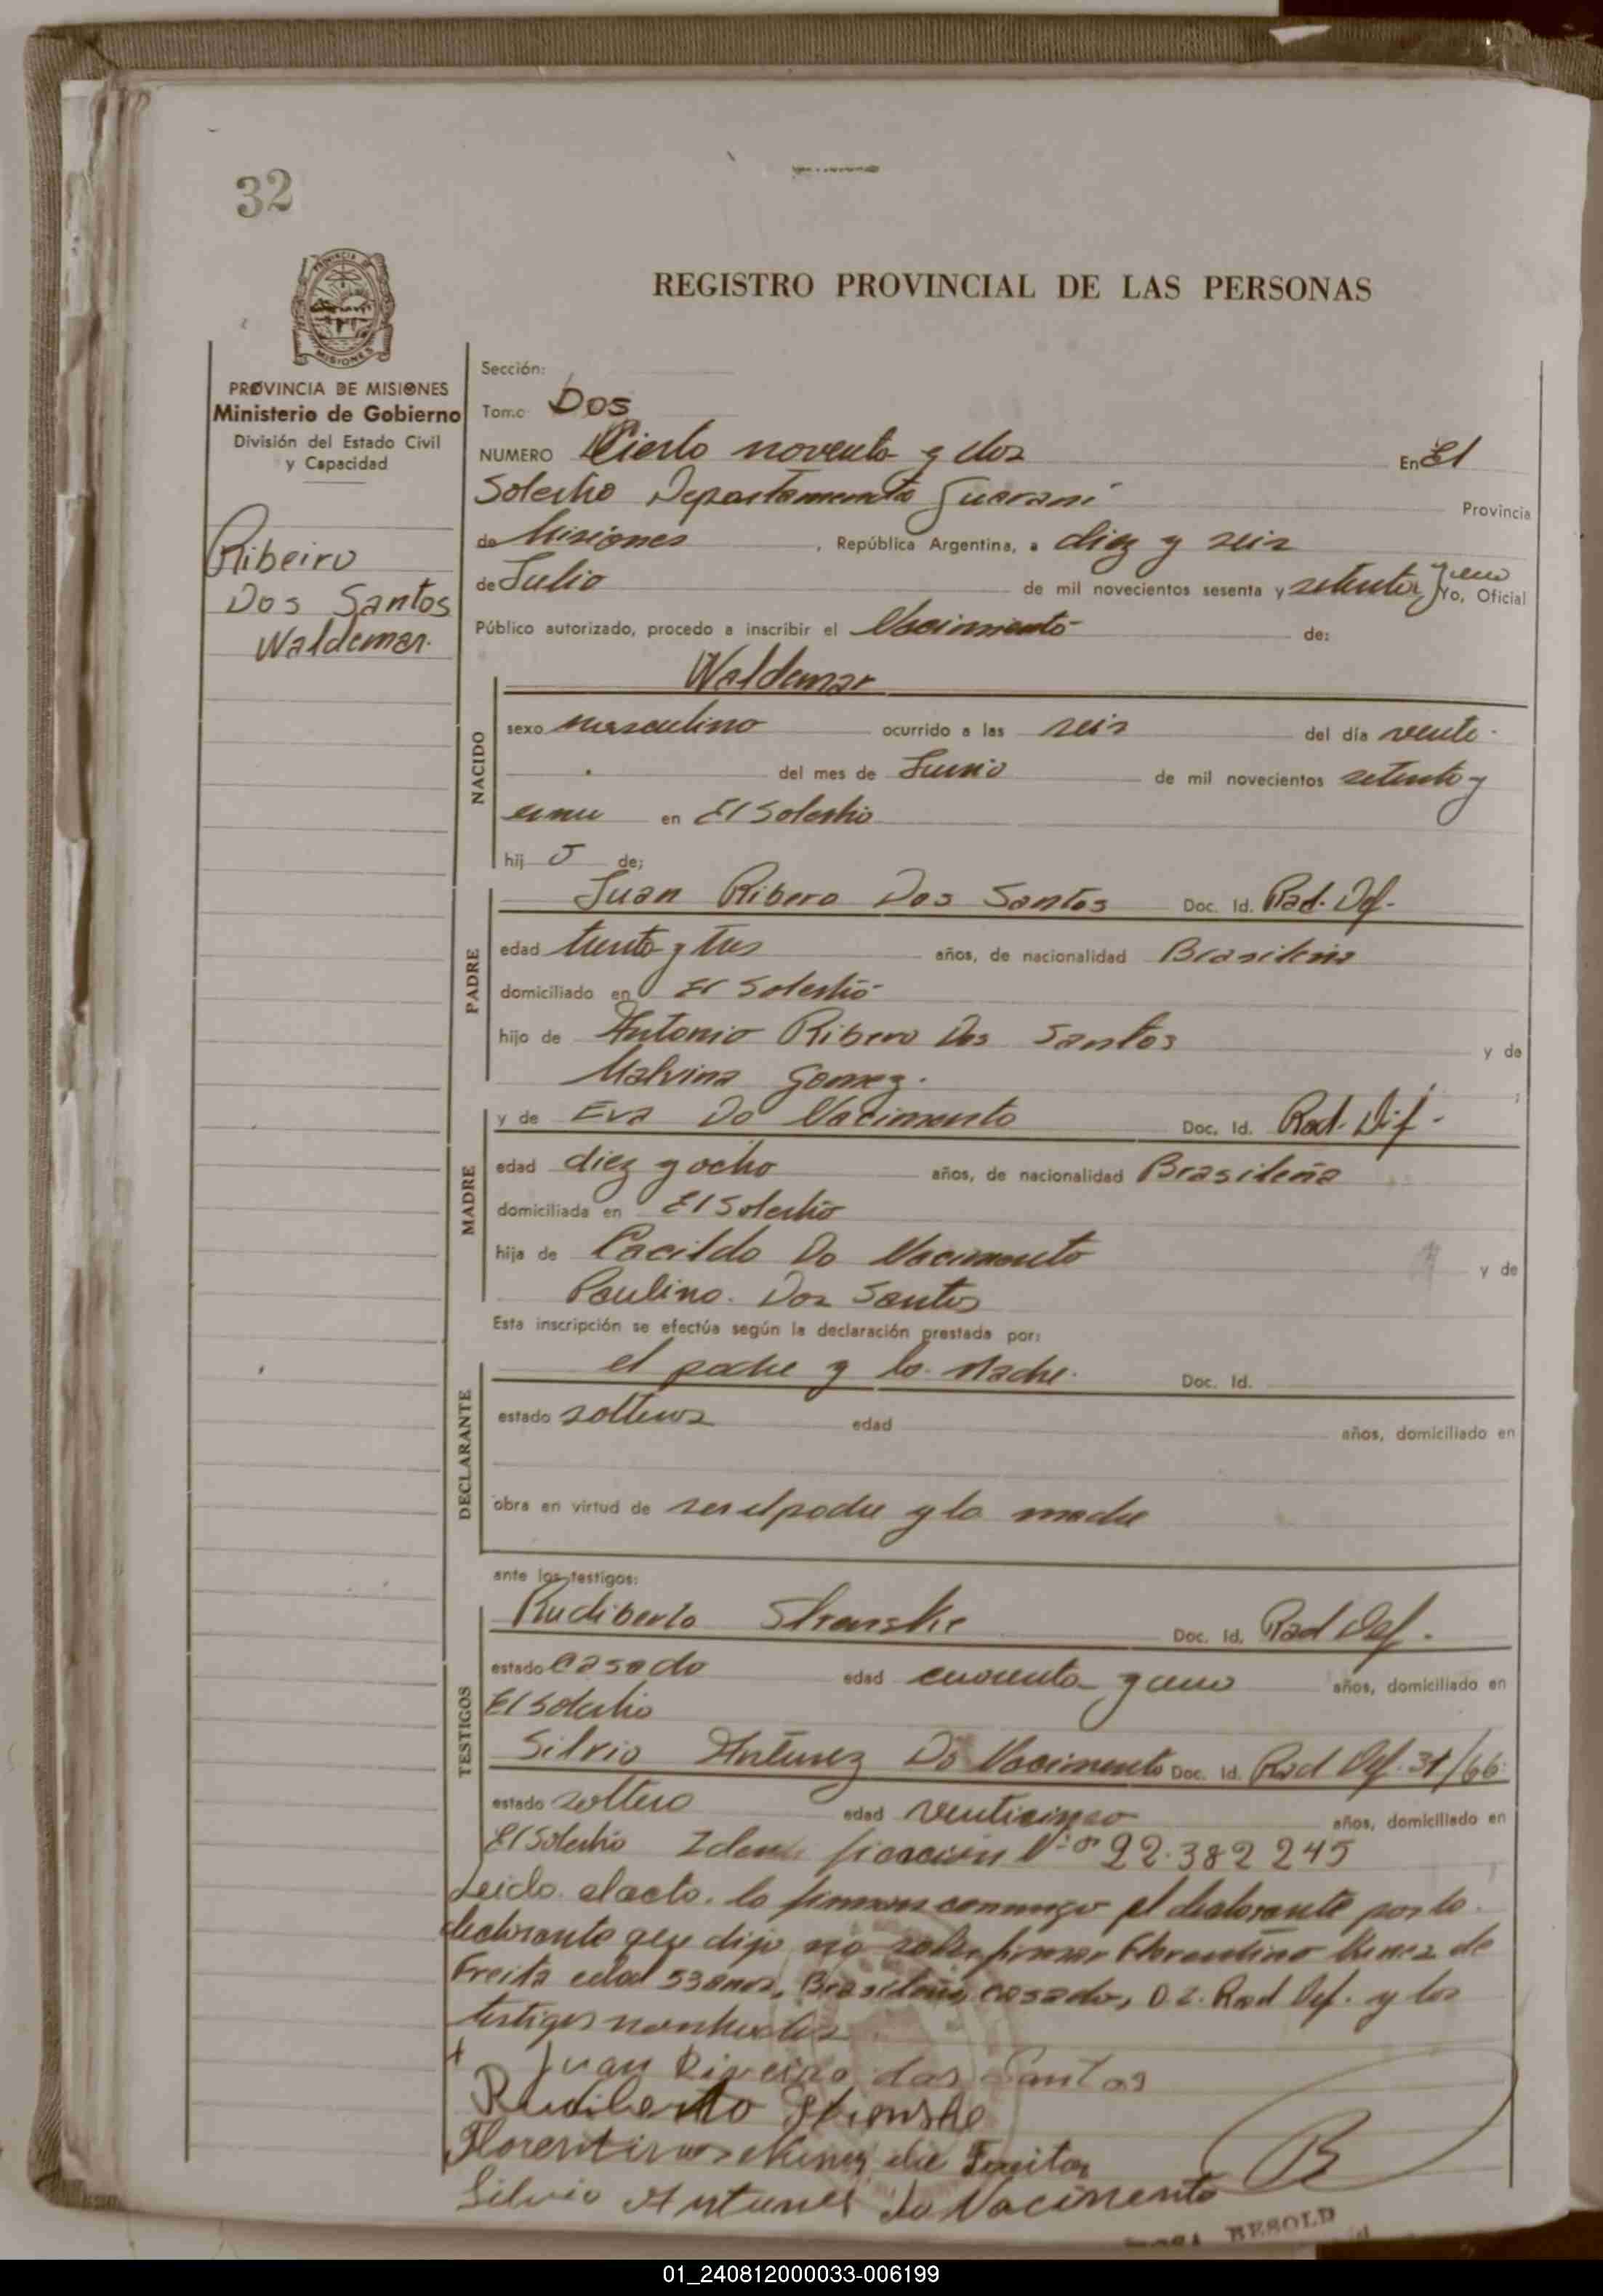 32
REGISTRO PROVINCIAL DE LAS PERSONAS
PROVINCIA DE MISIONES
Ministerio de Gobierno
División del Estado Civil
y Capacidad
Ribeiro
Dos Santos
Waldemar.
Sección:
Tomo Dos
NUMERO Ciento noventa y dos En El
Soberbio Departamento Guarani Provincia
de Misiones, República Argentina, a diez y seis
de Julio de mil novecientos sesenta y setenta y uno Yo, Oficial
Público autorizado, procedo a inscribir el Nacimiento de:
Waldemar
NACIDO
sexo masculino ocurrido a las seis del día veinte
del mes de Junio de mil novecientos setenta y
uno en El Soberbio
hij o de:
PADRE
Juan Ribero Dos Santos Doc. Id. Rad. Def.
edad treinta y tres años, de nacionalidad Brasileña
domiciliado en El Soberbio
hijo de Antonio Ribero Dos Santos y de
Malvina Gomez.
MADRE
y de Eva Do Nacimento Doc. Id. Rad. Def.
edad diez y ocho años, de nacionalidad Brasileña
domiciliada en El Soberbio
hija de Cacildo Do Nacimento y de
Paulina Dos Santos
Esta inscripción se efectúa según la declaración prestada por:
DECLARANTE
el padre y la Madre. Doc. Id.
estado solteros edad años, domiciliado en
obra en virtud de ser el padre y la madre
ante los testigos:
TESTIGOS
Rudiberto Doc. Id. Rad Def.
estado casado edad cuarenta y uno años, domiciliado en
El Soberbio
Silvio Antunez Do Nacimento Doc. Id. Rad Def. 31/66
estado soltero edad veinticinco años, domiciliado en
El Soberbio Identificación Nº 22.382 245
Leido el acto, lo firman conmigo el declarante por la
declarante que dijo no saber firmar Florentino de
Freita edad 53 anos, Brasileño, casado, D.I. Rad Def. y los
testigos nombrados
Juan Riveiro dos Santos
Rudiberto
Florentino de Freitas
Silvio Antunes do Nacimento
BESOLD
01_240812000033-006199